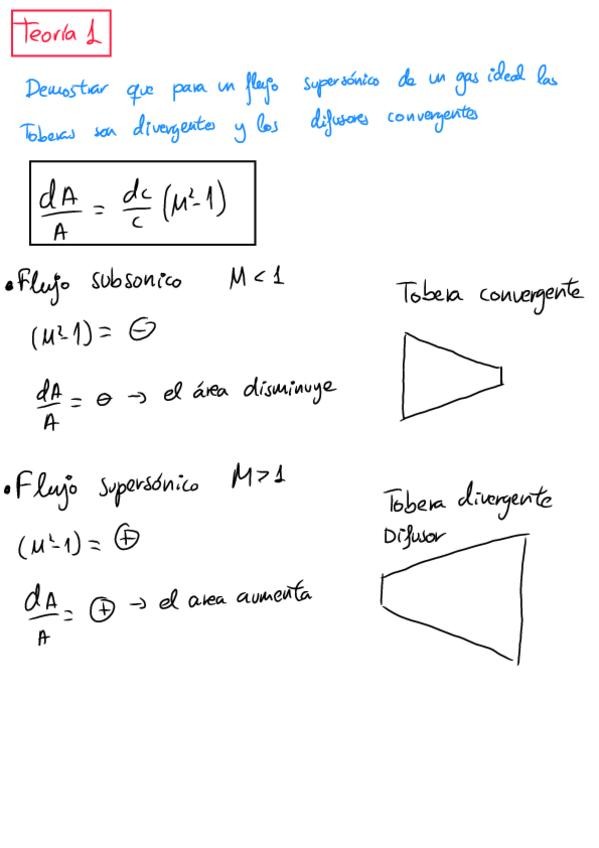 Teoría 1
Demostrar que para un flujo supersónico de un gas ideal las
Toberas son divergentes y los difusores convergentes
dA/A = dc/c (M²-1)
• Flujo subsonico M < 1
Tobera convergente
(M²-1) = ⊖
dA/A = ⊖ → el área disminuye
• Flujo supersónico M > 1
Tobera divergente
Difusor
(M²-1) = ⊕
dA/A = ⊕ → el area aumenta